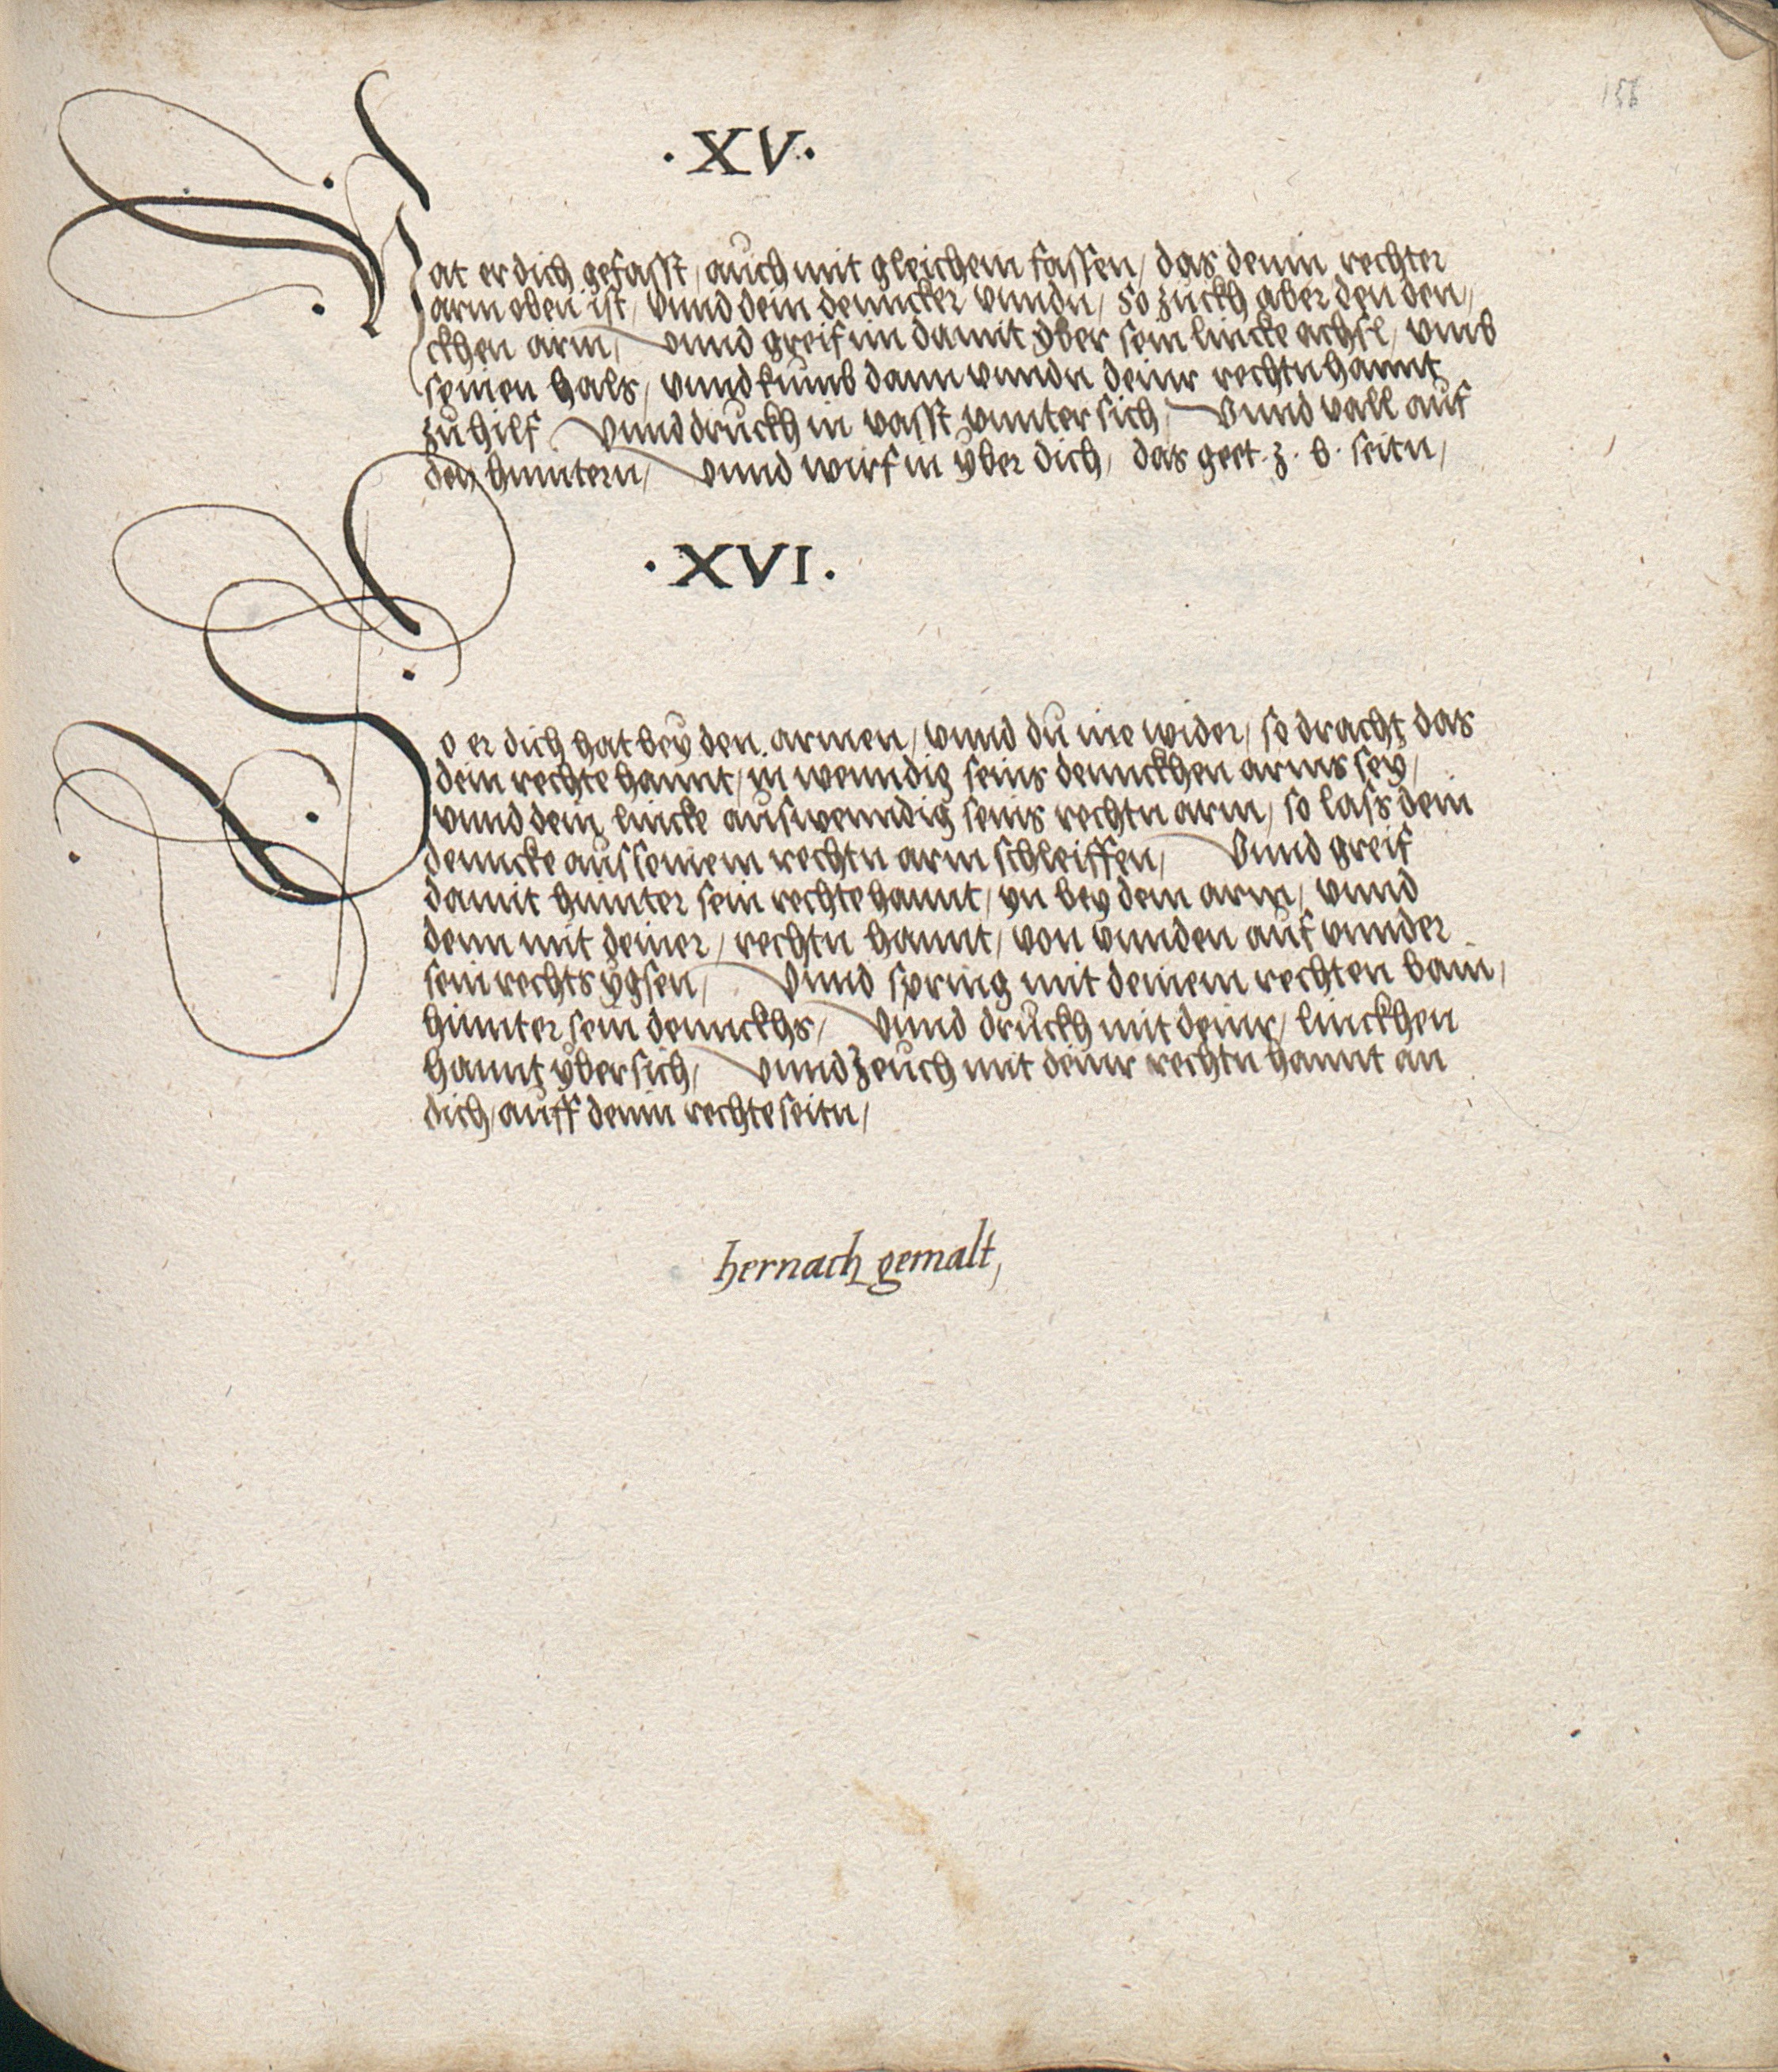 156
·XV·
Hat er dich gefasst / auch mit gleichem fassen / das denin rechter
arm oben ist / vnnd dein denncker vnndn / so zuckh aber den den/
ckhen arm / vnnd greif im damit yber sein lincke achsl / vmb
seinen hals / vnnd kumb dann vnndn deinr rechtn hannt
zu hilf vnnd druckh in vasst vnnter sich / Vnnd vall auf
den hinntern / vnnd wirf in yber dich / das geet · z · b · seitn /
·XVI·
So er dich hat bey den armen / vnnd du ine wider / so dracht das
dein rechte hannt / in wenndig seins dennckhen arms sey /
vnnd dein lincke auswenndig seins rechtn arm / so lass dein
denncke aus seinem rechtn arm schleiffen / Vnnd greif
damit hinnter sein rechte hannt / yn bey dem arm / vnnd
denn mit deiner / rechtn hannt / von vnnden auf vnnder
sein rechts ÿgsen / Vnnd spring mit deinem rechten bain /
hinnter sein dennckhs / Vnnd druckh mit deinr / linckhen
hannt yber sich / vnnd zeuch mit deinr rechtn hannt an
dich / auff denin rechte seitn /
hernach gemalt /